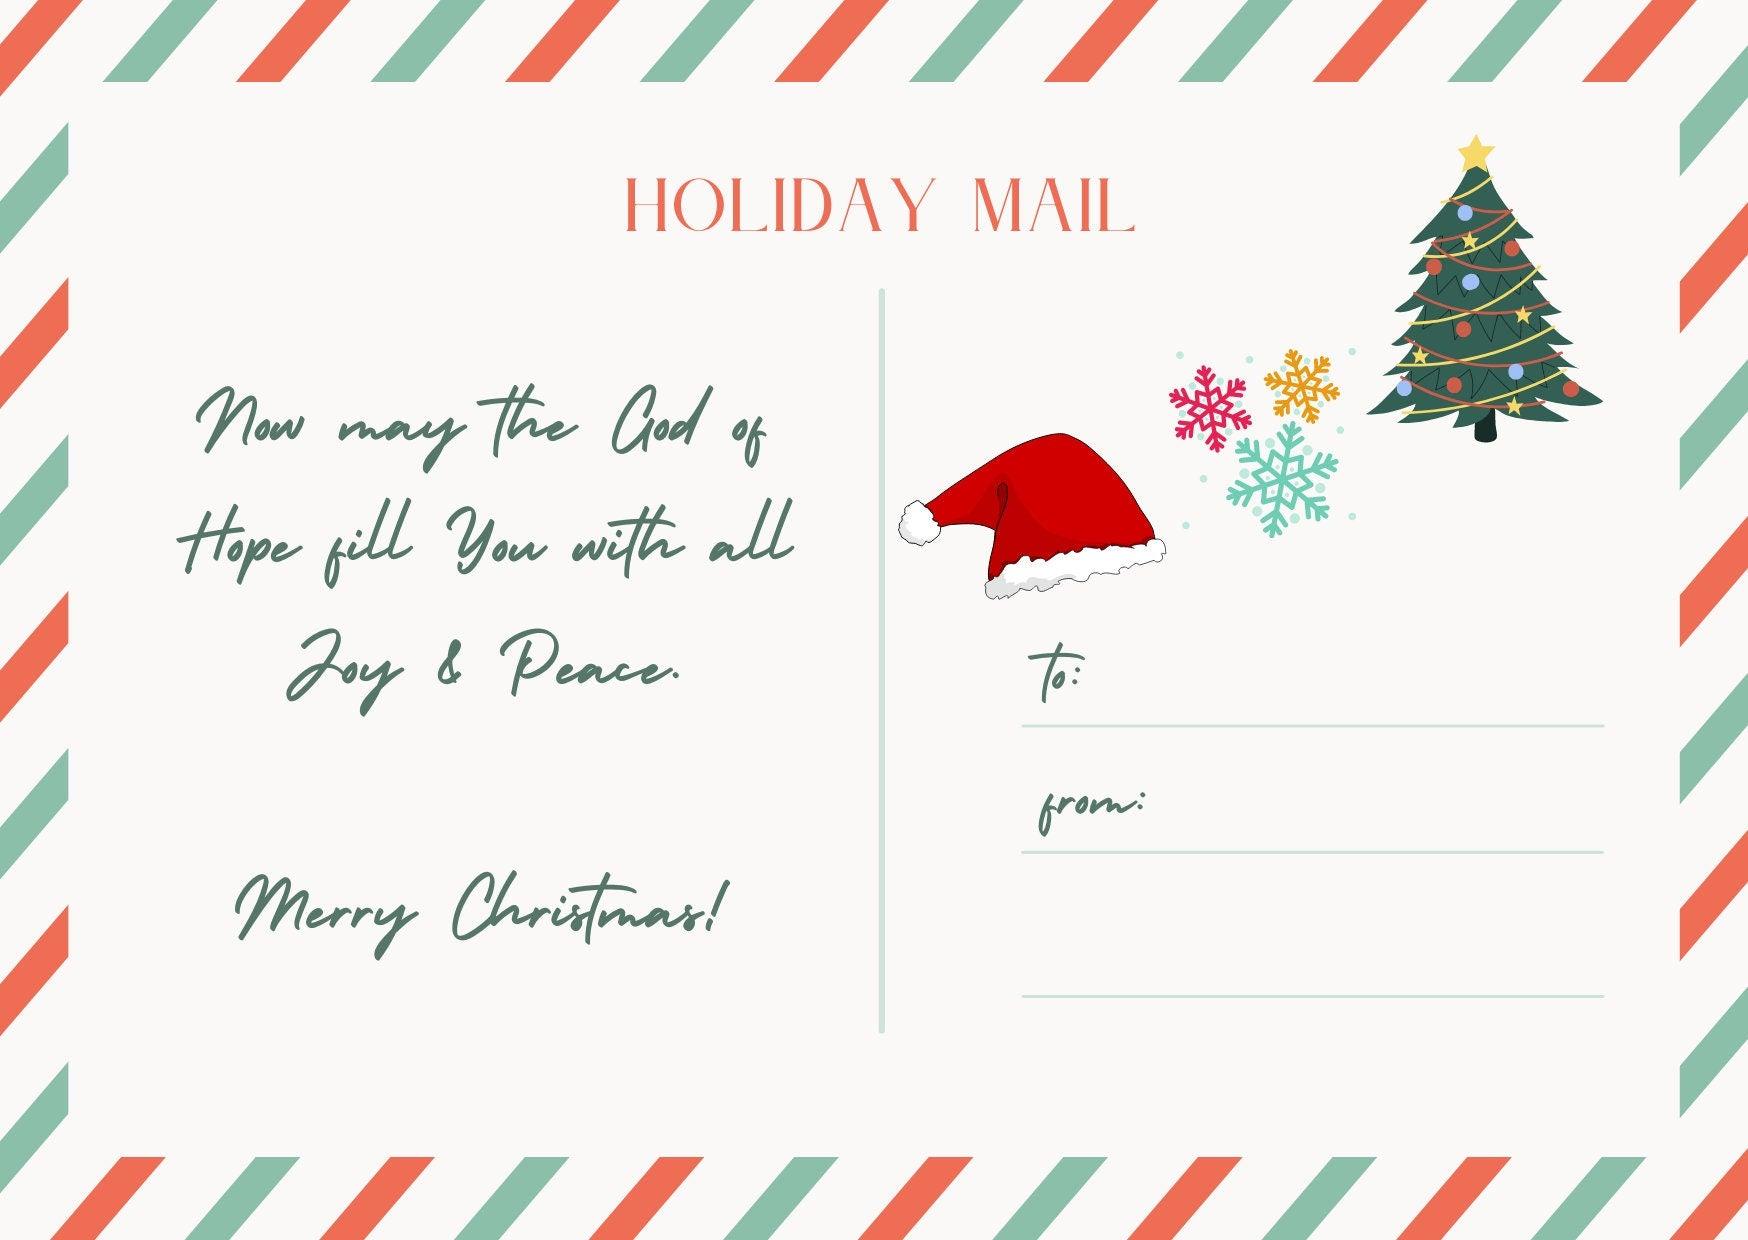 HOLIDAY MAIL
Now may the God of
Hope fill You with all
Joy & Peace.
Merry Christmas!
to:
from: